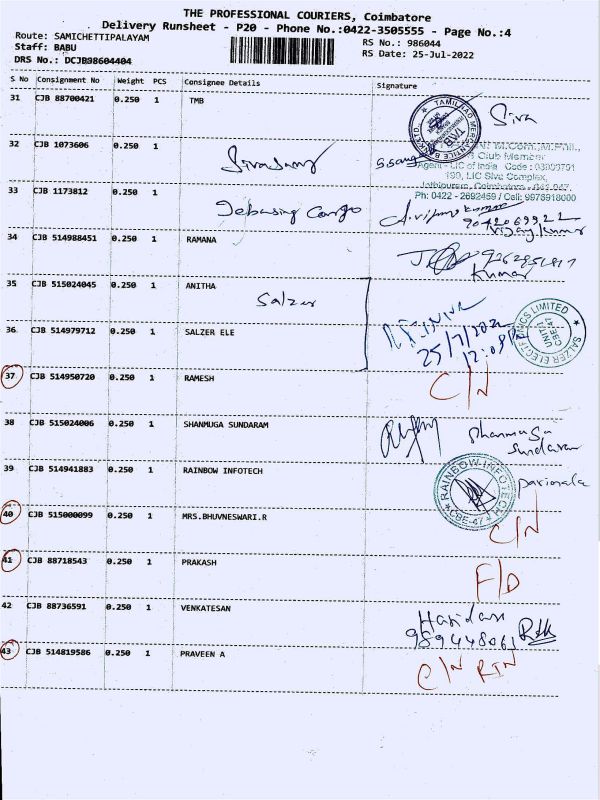 THE PROFESSIONAL COURIERS, Coimbatore
Delivery Runsheet - P20 - Phone No.:0422-3505555 - Page No.:4
Route: SAMICHETTIPALAYAM
RS No.: 986044
Staff: BABU
RS Date: 25-Jul-2022
DRS No.: DCJB98604404
S No Consignment No Weight PCS Consignee Details Signature
31 CJB 88700421 0.250 1 TMB
Siva
TAMILNAD MERCANTILE BANK LTD.
32 CJB 1073606 0.250 1
Club Member
Agent - LIC of India Code :
190, LIC Siva Complex,
33 CJB 1173812 0.250 1
Ph: 0422 - 2692459 / Cell: 9976918000
Cargo
Vijay Kumar
34 CJB 514988451 0.250 1 RAMANA
Kumar
35 CJB 515024045 0.250 1 ANITHA
Salzer
36 CJB 514979712 0.250 1 SALZER ELE
25/7/2022
12:08 PM
SALZER ELECTRONICS LIMITED
UNIT-1
CBE-47
37 CJB 514950720 0.250 1 RAMESH
C/N
38 CJB 515024006 0.250 1 SHANMUGA SUNDARAM
Shanmuga
Sundaram
39 CJB 514941883 0.250 1 RAINBOW INFOTECH
RAINBOW INFOTECH
CBE-47
parimala
40 CJB 515000099 0.250 1 MRS.BHUVNESWARI.R
C/N
41 CJB 88718543 0.250 1 PRAKASH
F/D
42 CJB 88736591 0.250 1 VENKATESAN
Haridass
9894448061
43 CJB 514819586 0.250 1 PRAVEEN A
C/N RTN